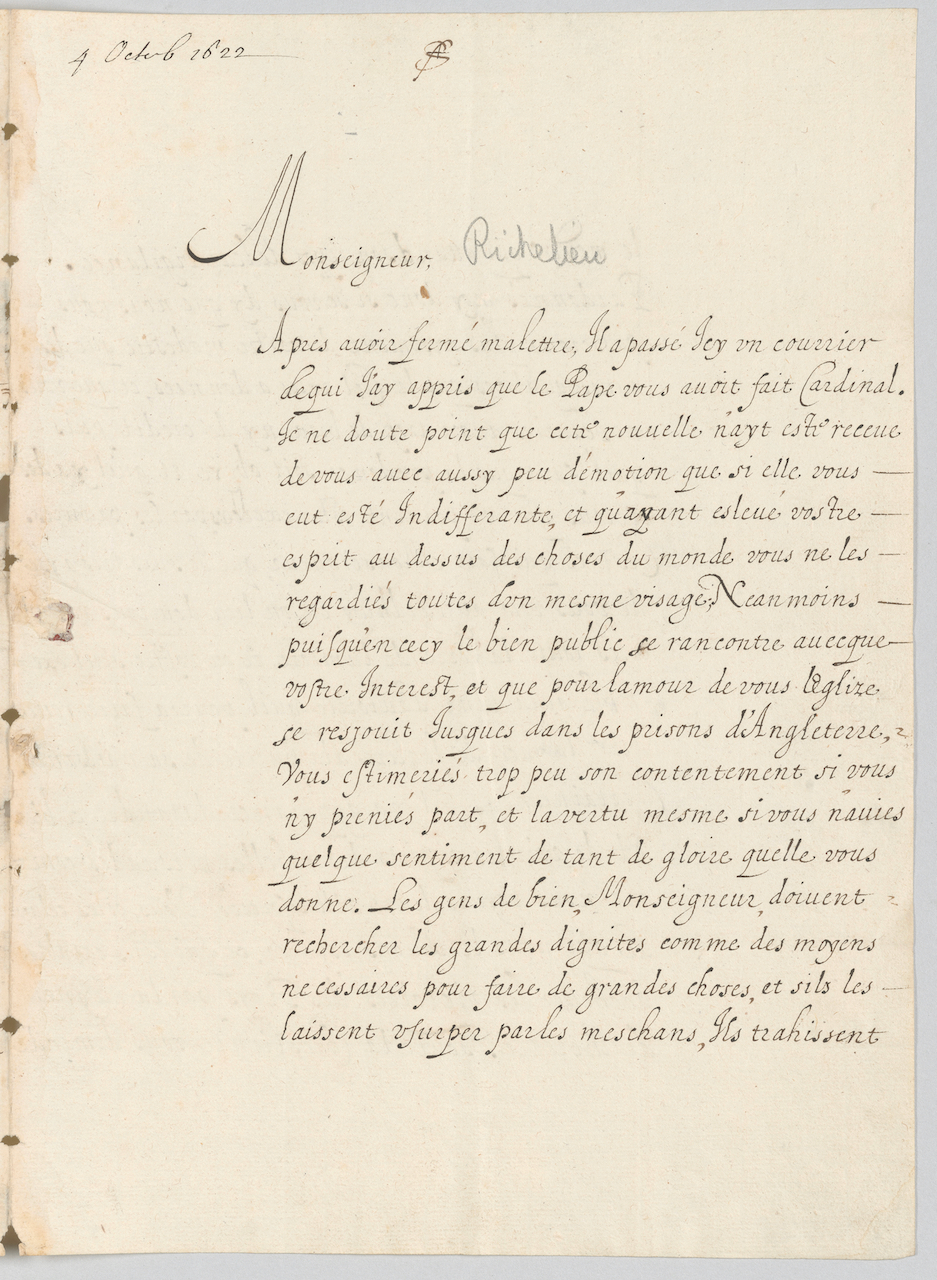 4 Octob 1622
Monseigneur,
Richelieu
Apres auoir fermé malettre, Il a passé Icy vn courrier
dequi J'ay appris que le Pape vous auoit fait Cardinal.
Je ne doute point que cete nouuelle n'ayt esté receue
de vous auec aussy peu d'émotion que si elle vous
eut esté Indifferante, et qu'ayant esleué vostre
esprit au dessus des choses du monde vous ne les
regardiés toutes d'vn mesme visage; Neanmoins
puisqu'en cecy le bien public se rancontre auecque
vostre Interest, et que pour lamour de vous l'Eglize
se resjouit Jusques dans les prisons d'Angleterre,
Vous estimeriés trop peu son contentement si vous
n'y preniés part, et la vertu mesme si vous n'auies
quelque sentiment de tant de gloire quelle vous
donne. Les gens de bien, Monseigneur, doiuent
rechercher les grandes dignites comme des moyens
necessaires pour faire de grandes choses, et sils les
laissent vsurper par les meschans, Ils trahissent